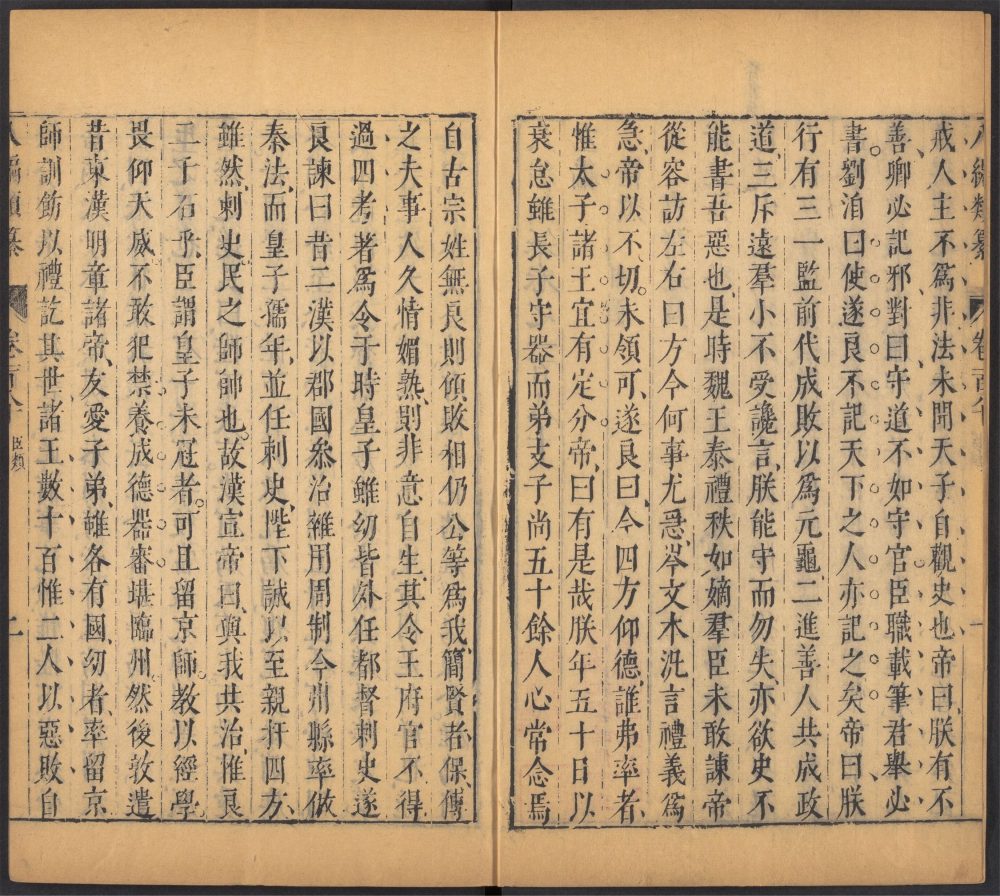 八編類纂 卷百八十 一
戒人主不爲非法未聞天子自觀史也帝曰朕有不
善卿必記邪對曰守道不如守官臣職載筆君舉必
書劉洎曰使遂良不記天下之人亦記之矣帝曰朕
行有三一監前代成敗以爲元龜二進善人共成政
道三斥遠羣小不受讒言朕能守而勿失亦欲史不
能書吾惡也是時魏王泰禮秩如嫡羣臣未敢諫帝
從容訪左右曰方今何事尤急岑文本汎言禮義爲
急帝以不切未領可遂良曰今四方仰德誰弗率者
惟太子諸王宜有定分帝曰有是哉朕年五十日以
衰怠雖長子守器而弟支子尚五十餘人心常念焉
自古宗姓無良則傾敗相仍公等爲我簡賢者保傅
之夫事人久情媚熟則非意自生其令王府官不得
過四考著爲令于時皇子雖幼皆外任都督刺史遂
良諫曰昔二漢以郡國參治雜用周制今州縣率倣
秦法而皇子孺年並任刺史陛下誠以至親扞四方
雖然刺史民之師帥也故漢宣帝曰與我共治惟良
二千石乎臣謂皇子未冠者可且留京師教以經學
畏仰天威不敢犯禁養成德器審堪臨州然後敦遣
昔東漢明章諸帝友愛子弟雖各有國幼者率留京
師訓飭以禮訖其世諸王數十百惟二人以惡敗自
八編類纂 卷百八十 臣類 二